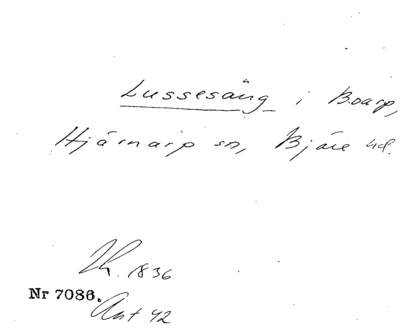 Lussesäng i Boarp,
Hjärnarp sn, Bjäre hd.
Th. 1836
Nr 7086.
Ant 42